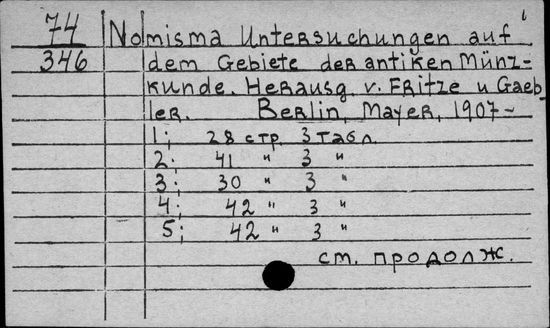 74 Nomisma Untersuchungen auf
346 dem Gebiete der antiken Münz-
kunde. Herausg. v. Fritze u Gaeb-
ler. Berlin, Mayer, 1907-
1; 28 стр. 3 табл.
2; 41 " 3 "
3; 30 " 3 "
4; 42 " 3 "
5; 42 " 3 "
ст. продолж.